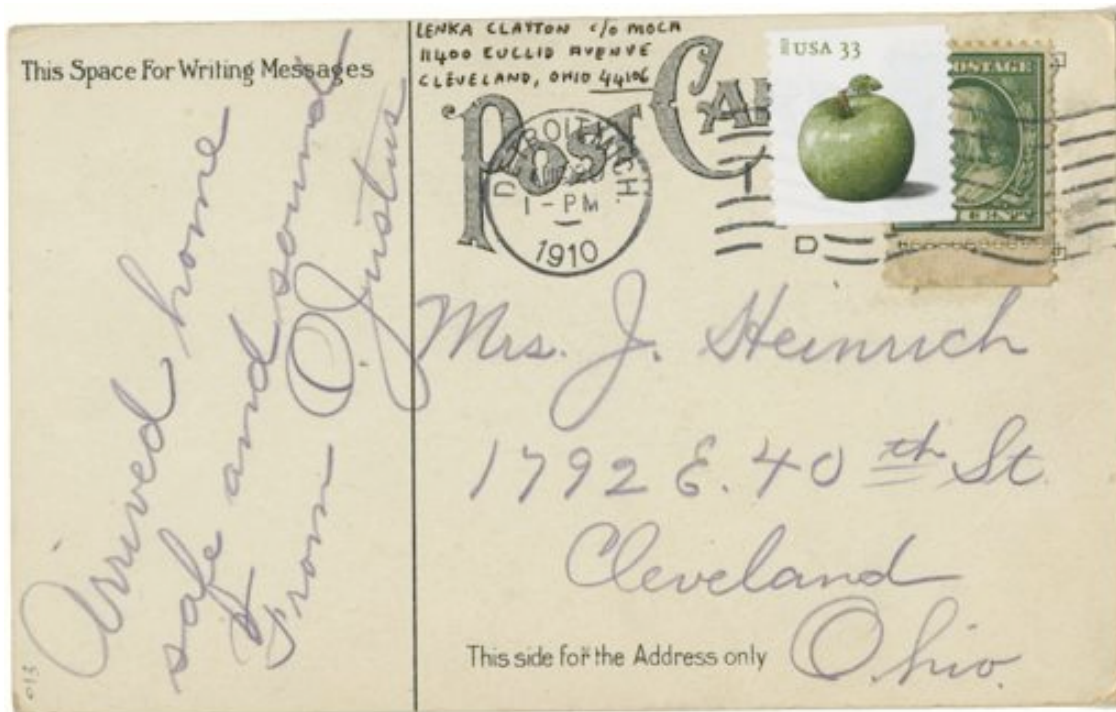 This Space For Writing Messages
Arrived home
safe and sound
From O. Justus
LENKA CLAYTON c/o MOCA
11400 EUCLID AVENUE
CLEVELAND, OHIO 44106
POST CARD
DETROIT, MICH.
1-PM
1910
USA 33
POSTAGE
Mrs. J. Heinrich
1792 E. 40th St.
Cleveland
Ohio.
This side for the Address only
013